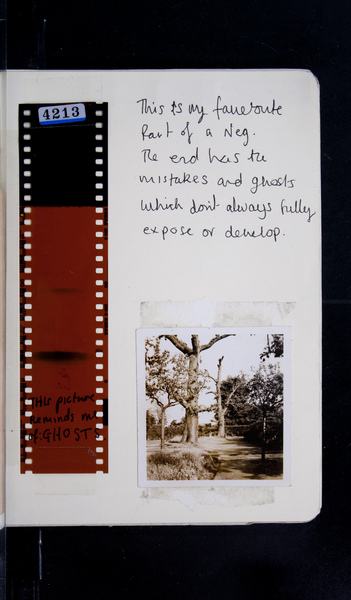 4213
This is my faveroute
Part of a Neg.
The end has the
mistakes and ghosts
which dont always fully
expose or develop.
This picture
Reminds me
of: GHOSTS